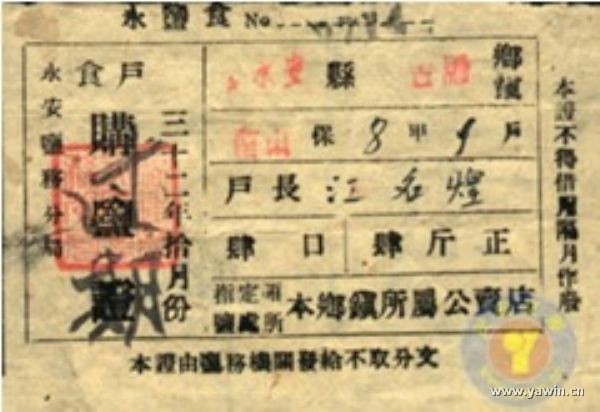 永鹽食 No
鄉鎮 縣 永豐
保 8 甲 9 戶
戶長 江名煌
肆 口 肆斤正
指定鹽處 本鄉鎮所屬公賣店
三十二年拾月份
食戶
購鹽證
永安鹽務分局
本證不得借用隔月作廢
本證由鹽務機關發給不取分文
www.yawin.cn